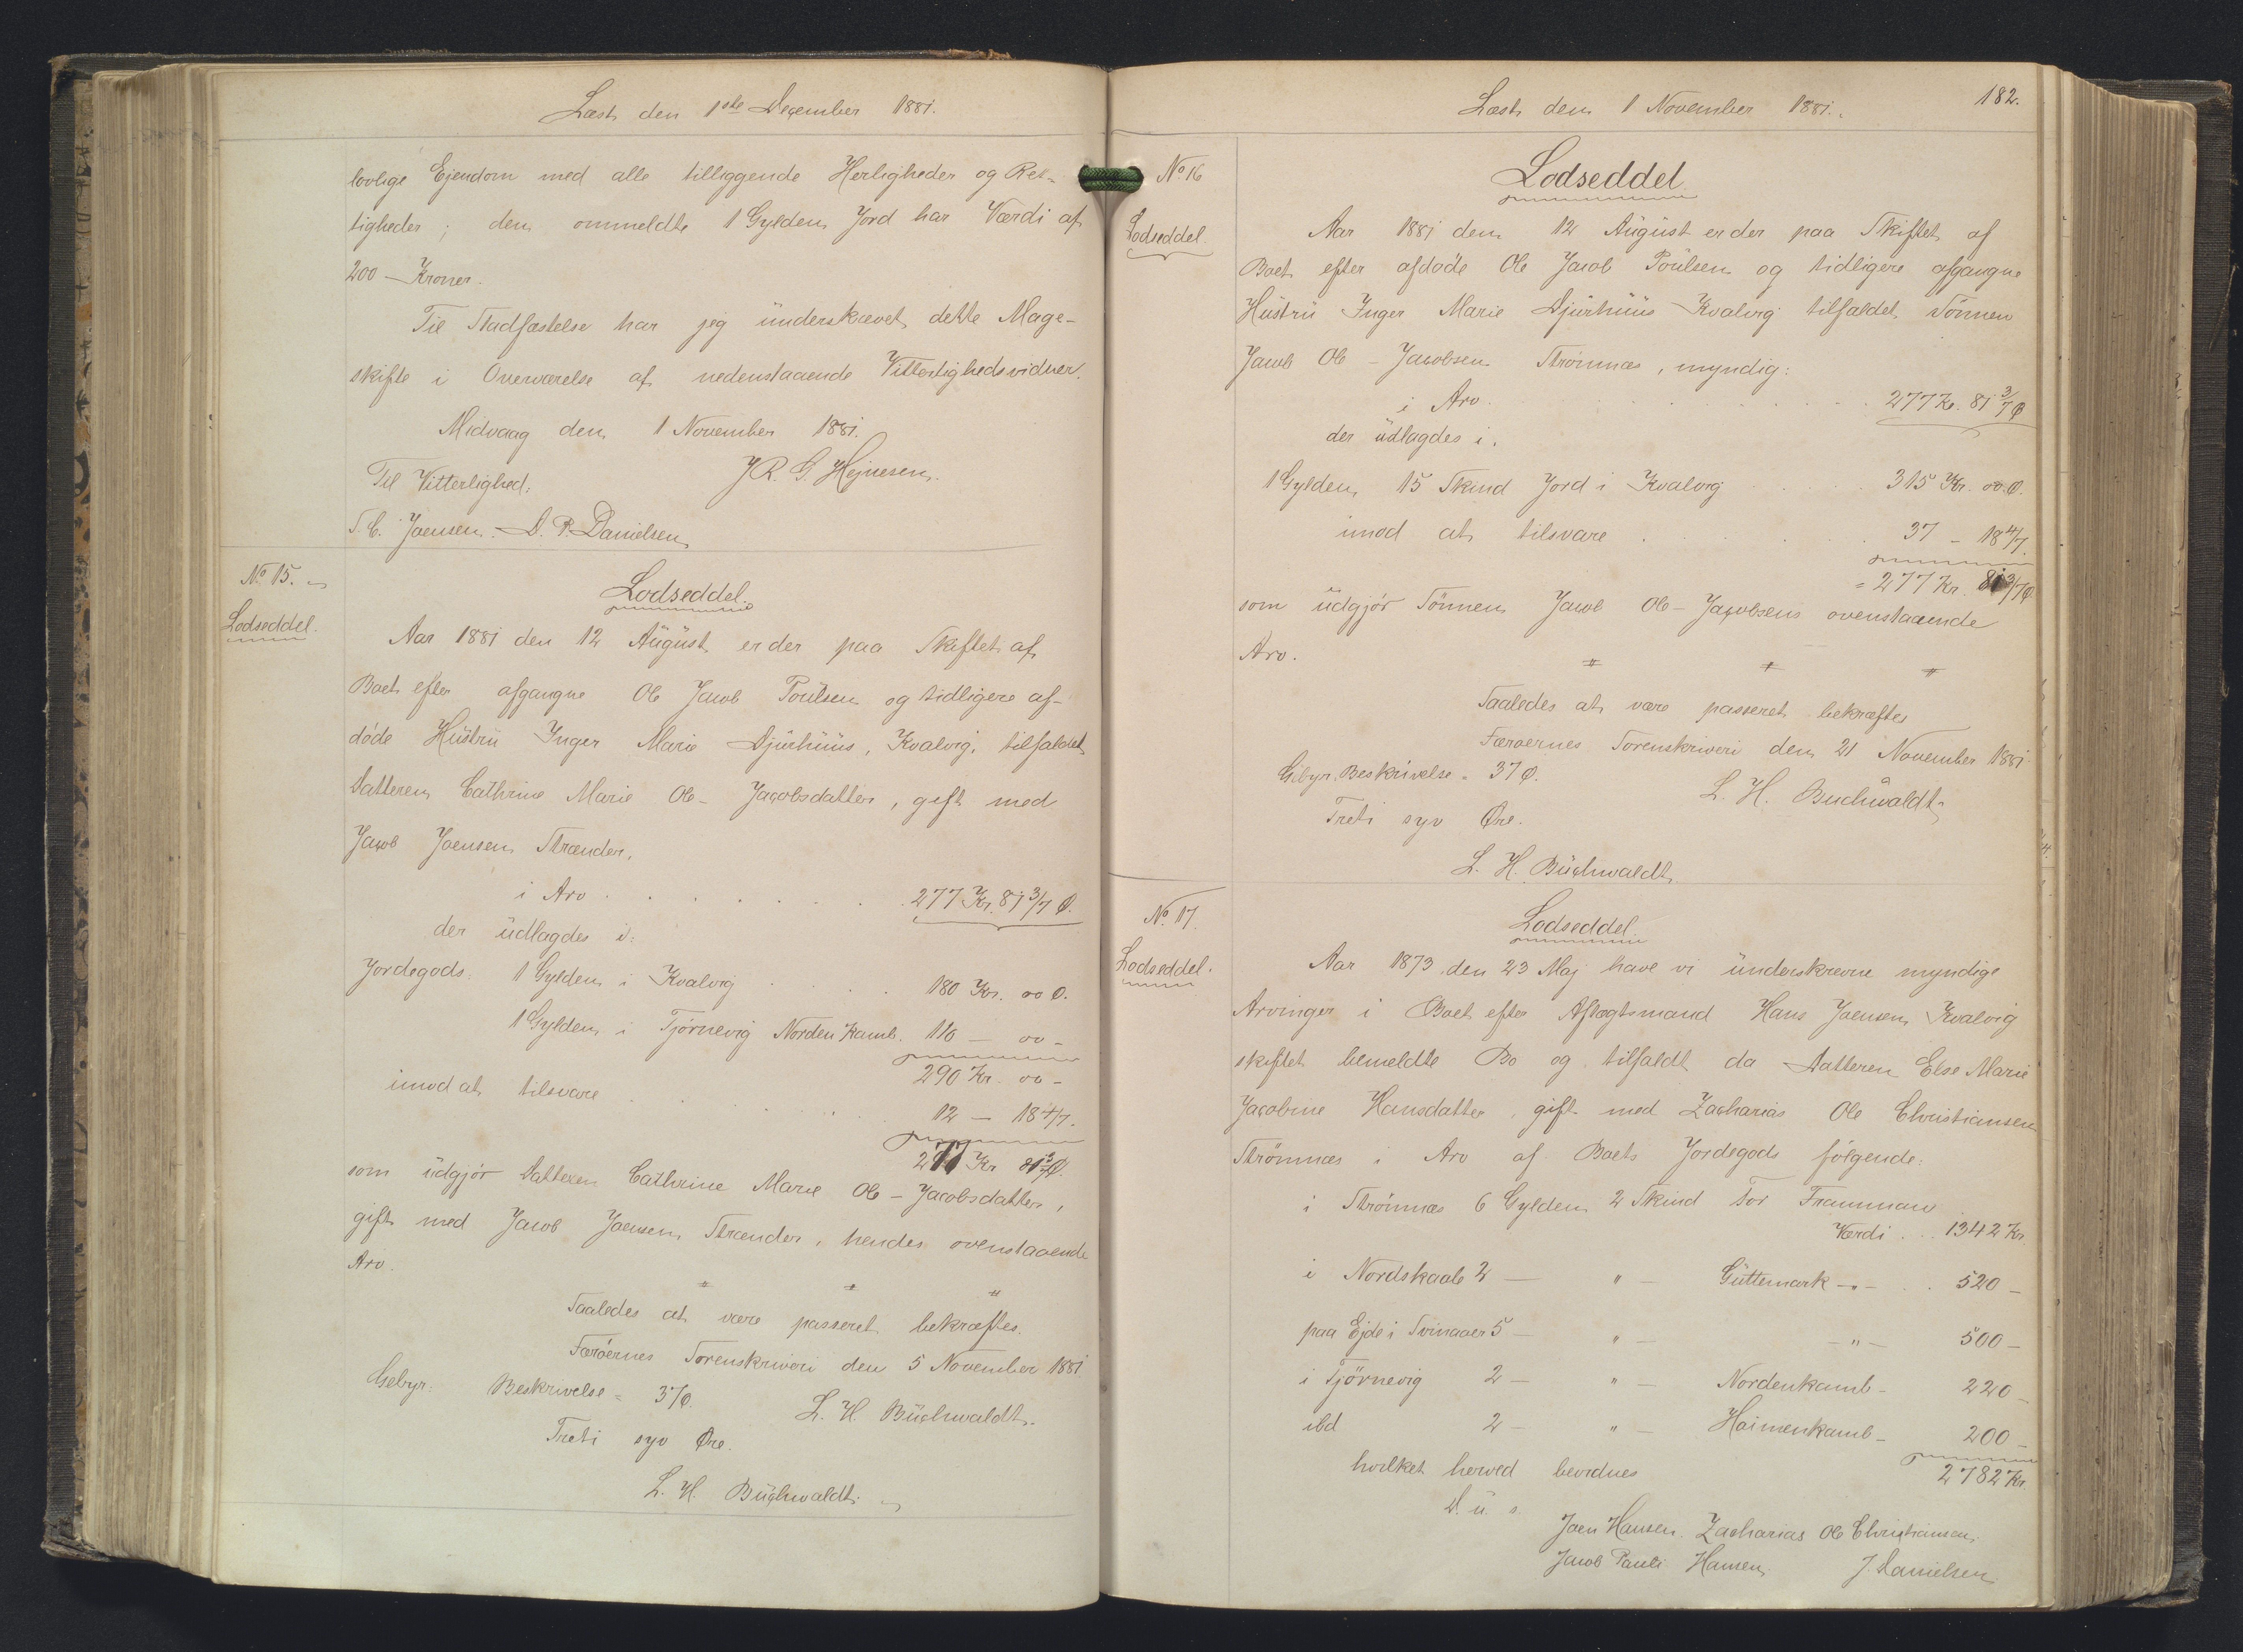 Læst den 1ste December 1881.
lovlige Ejendom med alle tilliggende Herligheder og Ret-
tigheder; den ommeldte 1 Gylden Jord har Værdi af
200 — Kroner.
Til Stadfæstelse har jeg underskrevet dette Mage-
skifte i Overværelse af nedenstaaende Vitterlighedsvidner.
Midvaag den 1 November 1881.
J. R. G. Hejnesen.
Til Vitterlighed:
S. C. Joensen. D. P. Danielsen
No 15.
Lodseddel.
Lodseddel.
Aar 1881 den 12 August er der paa Skiftet af
Boet efter afgangne Ole Jacob Poulsen og tidligere af-
døde Hustru Inger Marie Djurhuus, Kvalvig, tilfaldet
Datteren Cathrine Marie Ole-Jacobsdatter, gift med
Jacob Joensen Strænder,
i Arv . . . . . . . 277 Kr. 81 3/7 Ø.
der udlagdes i:
Jordegods: 1 Gylden i Kvalvig . . . . 180 Kr. 00 Ø.
1 Gylden i Tjørnevig Norden Kamb. 110 — 00 -
290 Kr. 00 -
imod at tilsvare . . . . . 12 — 18 4/7.
277 Kr 81 3/7 Ø.
som udgjør Datteren Cathrine Marie Ole-Jacobsdatter,
gift med Jacob Joensen, Strænder, hendes ovenstaaende
Arv.
Saaledes at være passeret bekræftes.
Færøernes Sorenskriveri den 5 November 1881
Gebyr: Beskrivelse = 37 Ø. L. H. Buchwaldt.
Treti syv Øre.
L. H. Buchwaldt.
Læst den 1 November 1881.
182.
No 16
Lodseddel.
Lodseddel
Aar 1881 den 12 August er der paa Skiftet af
Boet efter afdøde Ole Jacob Poulsen og tidligere afgangne
Hustru Inger Marie Djurhuus Kvalvig tilfaldet Sønnen
Jacob Ole-Jacobsen Strømnæs, myndig:
i Arv . . . . . . . 277 Kr. 81 3/7 Ø
der udlagdes i.
1 Gylden 15 Skind Jord i Kvalvig . . . . 315 Kr. 00 Ø.
imod at tilsvare . . . . . 37 - 18 4/7.
= 277 Kr. 81 3/7 Ø
som udgjør Sønnen Jacob Ole-Jacobsens ovenstaaende
Arv.
Saaledes at være passeret bekræftes
Færøernes Sorenskriveri den 21 November 1881
Gebyr. Beskrivelse = 37 Ø.
L. H. Buchwaldt
Treti syv Øre.
L. H. Buchwaldt
No 17.
Lodseddel.
Lodseddel.
Aar 1873 den 23 Maj have vi underskrevne myndige
Arvinger i Boet efter Aftægtsmand Hans Joensen Kvalvig
skiftet bemeldte Bo og tilfaldt da Datteren Else Marie
Jacobine Hansdatter, gift med Zacharias Ole Christiansen
Strømnæs i Arv af Boets Jordegods følgende:
i Strømnæs 6 Gylden 2 Skind for Frammanv
Værdi . . . 1342 Kr.
i Nordskaale 2 — " — Guttemark -"- . . 520 -
paa Ejde i Svinaaer 5 — " — -"- 500 -
i Tjørnevig 2 — " — Nordenkamb - 220 -
ibd 2 — " — Haimenkamb - 200 -
2782 Kr.
hvilket herved bevidnes
D. u. s.
Joen Hansen. Zacharias Ole Christiansen.
Jacob Pauli Hansen. J. Danielsen.